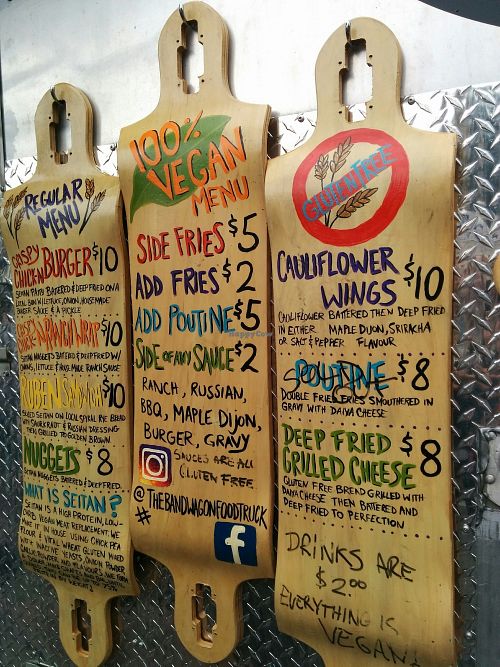 REGULAR
MENU
CRISPY
CHICKEN BURGER $10
SEITAN PATTY BATTERED & DEEP FRIED ON A
LOCAL BUN W/ LETTUCE, ONION, HOUSEMADE
BURGER SAUCE & A PICKLE
RANCH WRAP $10
SEITAN NUGGETS BATTERED & DEEP FRIED W/
ONIONS, LETTUCE & HOUSE MADE RANCH SAUCE
RUBEN SANDWICH $10
SLICED SEITAN ON LOCAL SPIRAL RYE BREAD
WITH SAUERKRAUT & RUSSIAN DRESSING
THEN GRILLED TO GOLDEN BROWN
NUGGETS $8
SEITAN NUGGETS BATTERED & DEEP FRIED
WHAT IS SEITAN?
SEITAN IS A HIGH PROTEIN, LOW-
CARB, VEGAN MEAT REPLACEMENT. WE
MAKE IT IN HOUSE USING CHICK PEA
FLOUR & VITAL WHEAT GLUTEN MIXED
WITH INACTIVE YEASTS, ONION POWDER
GARLIC POWDER
100%
VEGAN
MENU
SIDE FRIES $5
ADD FRIES $2
ADD POUTINE $5
SIDE OF ANY SAUCE $2
RANCH, RUSSIAN,
BBQ, MAPLE DIJON,
BURGER, GRAVY
SAUCES ARE ALL
GLUTEN FREE
@THEBANDWAGONFOODTRUCK
#
f
GLUTEN FREE
CAULIFLOWER
WINGS $10
CAULIFLOWER BATTERED THEN DEEP FRIED
IN EITHER MAPLE DIJON, SRIRACHA
OR SALT & PEPPER FLAVOUR
POUTINE $8
DOUBLE FRIED FRIES SMOTHERED IN
GRAVY WITH DAIYA CHEESE
DEEP FRIED
GRILLED CHEESE $8
GLUTEN FREE BREAD GRILLED WITH
DAIYA CHEESE THEN BATTERED AND
DEEP FRIED TO PERFECTION
DRINKS ARE
$2.00
EVERYTHING IS
VEGAN!